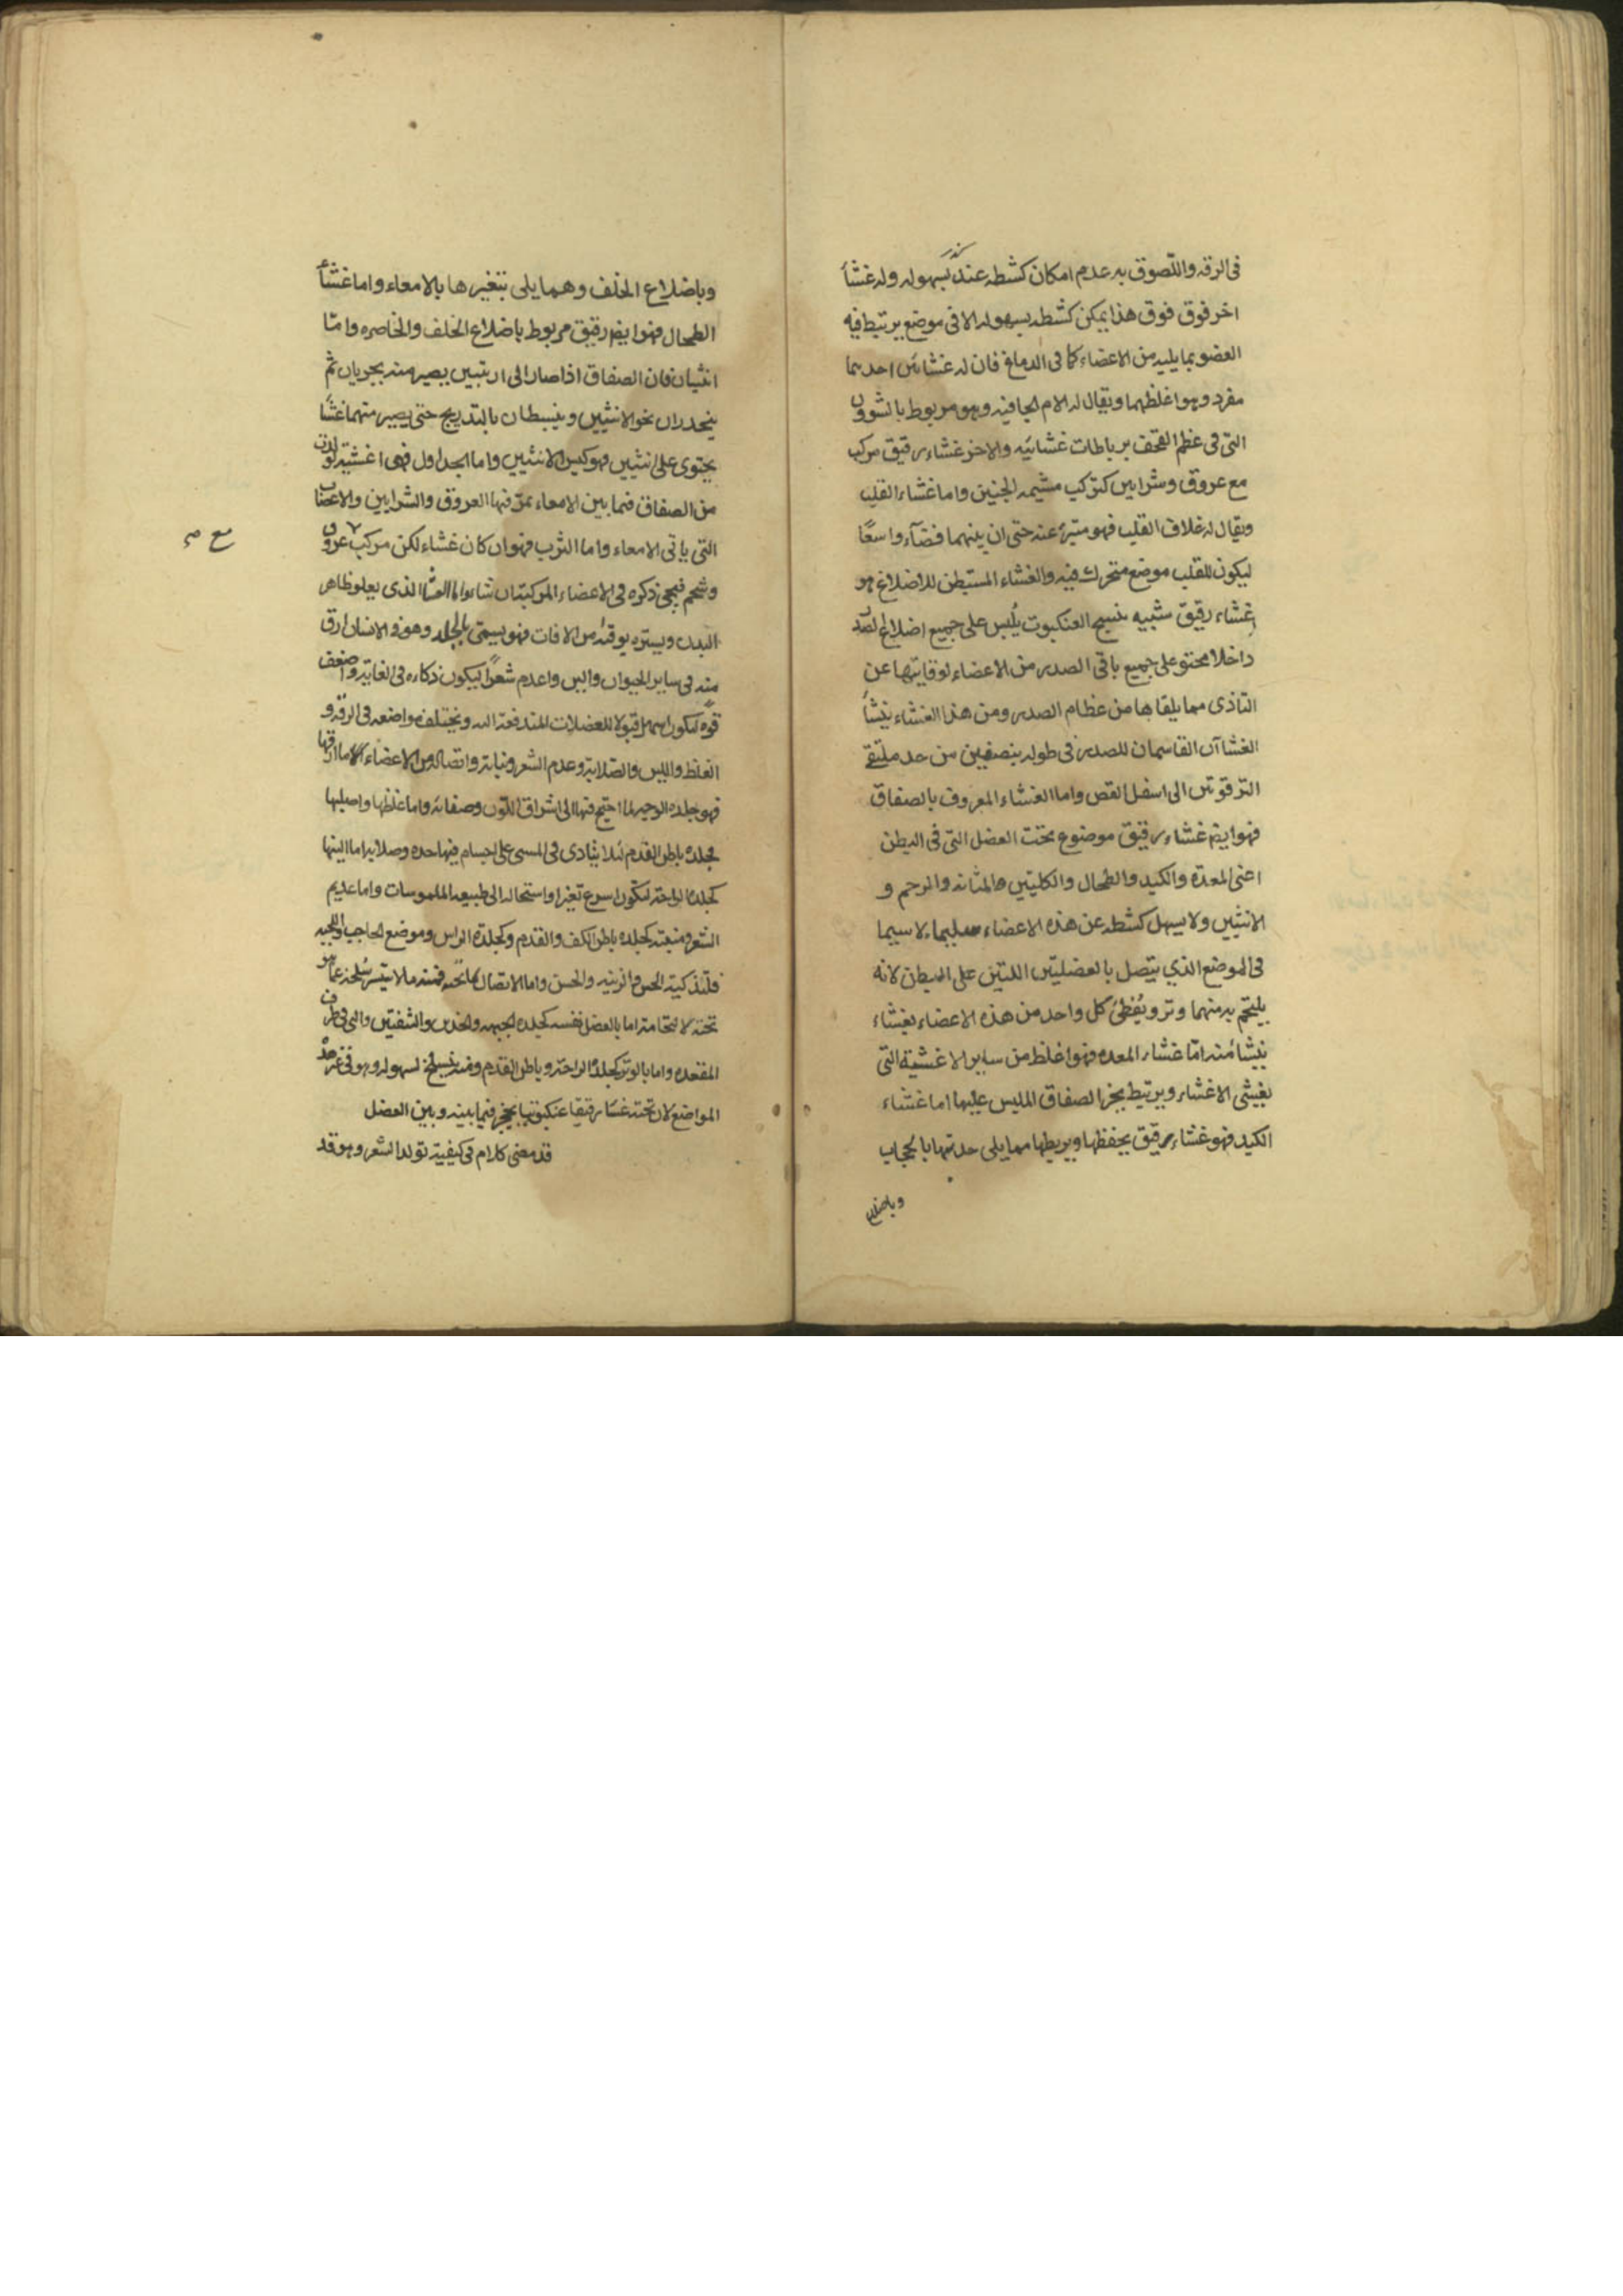 فى الرقه واللصوق به عدم امكان كشطه عنه بسهوله وله غشأ
اخر فوق فوق هذا يمكن كشطه بسهوله الا فى موضع يرتبط فيه
العضو بما يليه من الاعضاء كما فى الدماغ فان له غشائين احدهما
مفرد وهو اغلظهما ويقال له الام الجافيه وهو مربوط بالشؤون
التى فى عظم القحف برباطات غشائيه والاخر غشاء رقيق مركب
مع عروق وشرايين كتركيب مشيمه الجنين واما غشاء القلب
ويقال له غلاف القلب فهو متبرئ عنه حتى ان بينهما فضآء واسعًا
ليكون للقلب موضع متحرك فيه والغشاء المستبطن للاضلاع هو
غشاء رقيق شبيه بنسيج العنكبوت يُلبس على جميع اضلاع الصدر
داخلا محتو على جميع باقى الصدر من الاعضاء لوقايتها عن
التاذى مما يلقاها من عظام الصدر ومن هذا الغشاء ينشأ
الغشاآن القاسمان للصدر فى طوله بنصفين من حد ملتقى
الترقوتين الى اسفل القص واما الغشاء المعروف بالصفاق
فهو ايضا غشاء رقيق موضوع تحت العضل التى فى البطن
اعنى المعدة والكبد والطحال والكليتين والمثانه والرحم و
الانثيين ولا يسهل كشطه عن هذه الاعضاء سليما لا سيما
فى الموضع الذي يتصل بالعضليتين اللتين على البطن لانه
يلتحم به منهما وتر ويُغطئ كل واحد من هذه الاعضاء بغشاء
ينشأ منه امّا غشاء المعده فهو اغلظ من ساير الاغشية التى
تغشى الاغشاء ويرتبط بجزء الصفاق الملبس عليها اما غشاء
الكبد فهو غشاء رقيق يحفظها ويربطها مما يلى حدبتها بالحجاب
وباضلاع
وباضلاع الخلف وهما يلى بتغيرها بالامعاء واما غشأ
الطحال فهو ايضا رقيق مربوط باضلاع الخلف والخاصره وامّا
انثيان فان الصفاق اذا صار الى الاربتيين يصير منه مجريان ثم
ينحدران نحو الانثيين وينبسطان بالتدريج حتى يصير منهما غشًا
يحتوى على انثيين فهو كيس الانثيين واما الجداول فهى اغشية
من الصفاق فيما بين الامعاء تمرّ فيها العروق والشرايين والاعصاب
التى ياتى الامعاء واما الثرب فهو ان كان غشاء لكن مركب عروق
وشحم فيجى ذكره فى الاعضاء المركبة ان شاء الله اما الغشاء الذى يعلو ظاهر
البدن ويستره يوقيه من الافات فهو يسمى بالجلد وهو فى الانسان ارق
منه فى ساير الحيوان والين واعدم شعرًا ليكون ذكاءه فى الغاية واضعف
قوة ليكون اسهل قبولا للفضلات المندفعة اليه ويختلف مواضعه فى الرقه و
الغلظ واللين والصلابة وعدم الشعر ونباته واتصاله من الاعضاء اما ارقها
فهو جلده الوجه لما احتيج فيها الى اشراق اللون وصفائه واما غلظها واصلبها
فجلده باطن القدم لئلا يتاذى فى المشى على اجسام فيها حده وصلابه اما الينها
كجلدة الراحة لتكون اسرع تغيرا واستحاله الى طبيعه الملموسات واما عديم
الشعر ومنبته كجلده باطن الكف والقدم وكجلدة الراس وموضع الحاجب واللحيه
فلتذكية الحس والزينه والحسن واما الاتصال بما تحته فمنه ما لا يتيسر سلخه عما هو
تحته لالتحامته اما بالعضل نفسه كجلده الجبهه والخدين والشفتين والتى فى طرف
المقعده واما بالوتر كجلدة الراحة وباطن القدم ومنه ينسلخ بسهوله وهو فى غير هذه
المواضع لان تحته غشاء رقيقا عنكبوتيا يحجز فيما بينه وبين العضل
قد مضى كلام فى كيفية تولد الشعر وهو قد